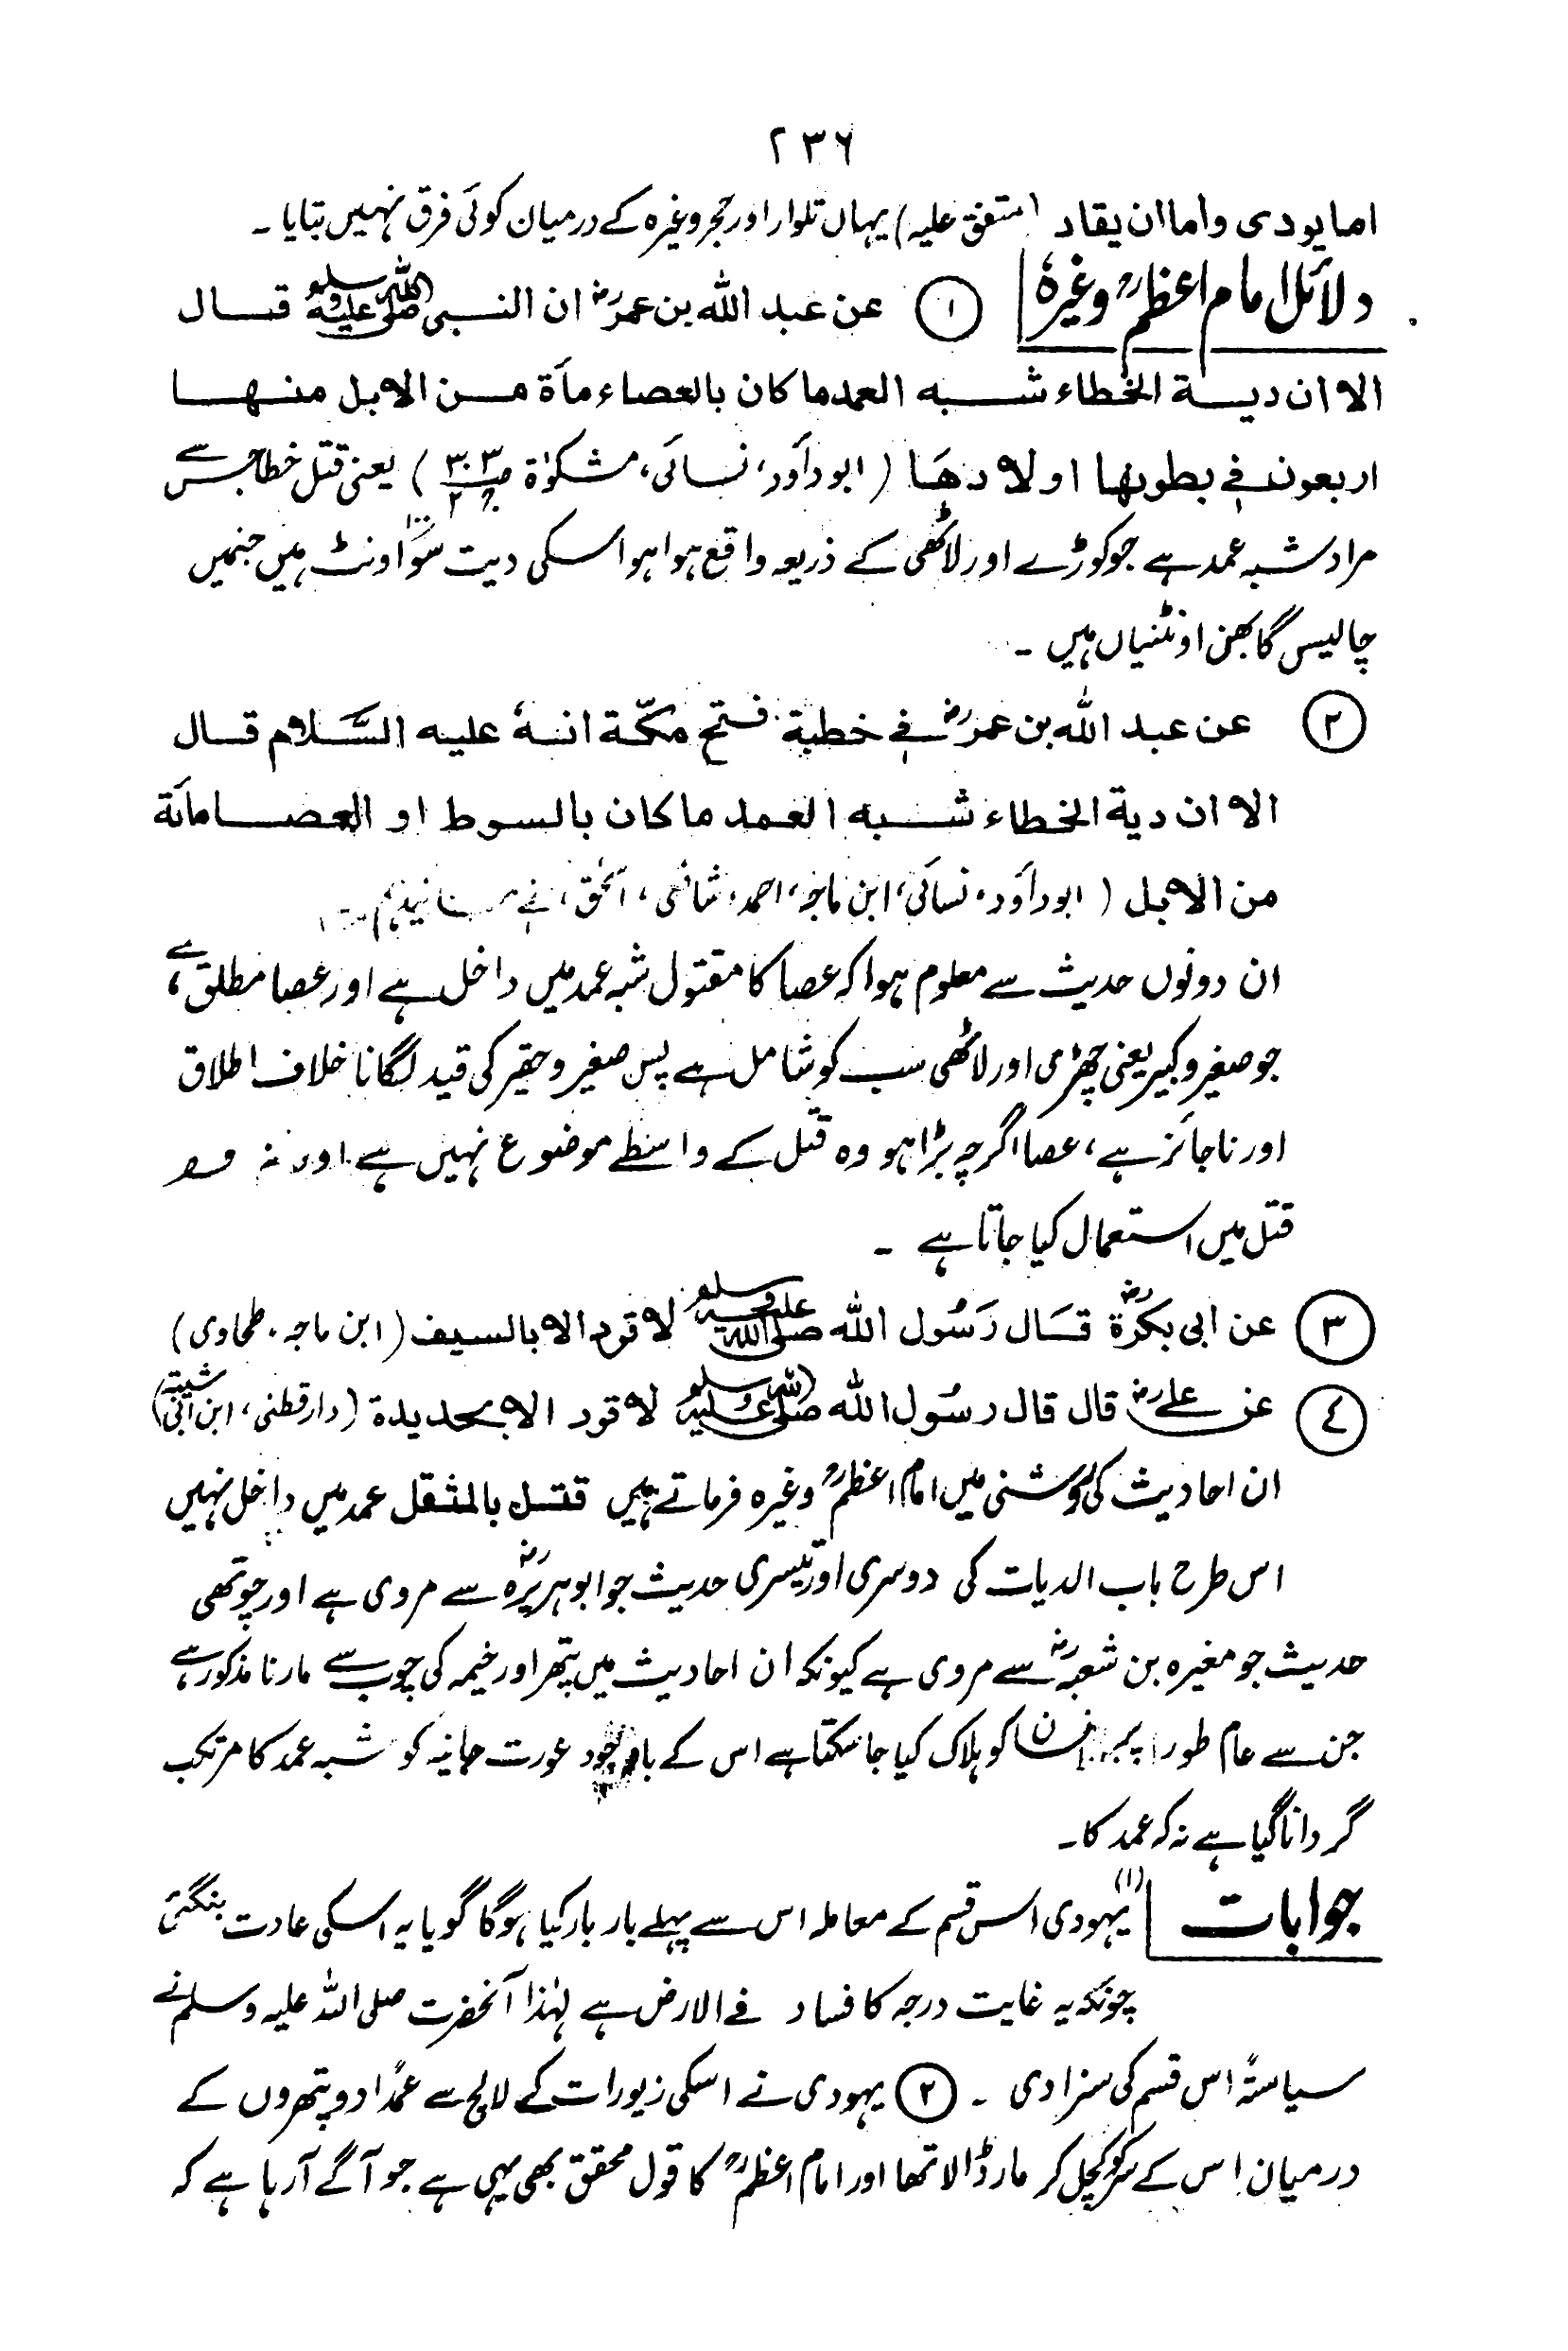 ۲۳۶
اما یودی واما ان یقاد (متفق علیہ) یہاں تلوار اور حجر وغیرہ کے درمیان کوئی فرق نہیں بتایا ۔
دلائل امام اعظمؒ وغیرہٗ ① عن عبد الله بن عمرؓ ان النبی صلی اللہ علیہ وسلم قال
الا ان دیة الخطاء شبه العمد ما کان بالعصاء مأة من الابل منها
اربعون فی بطونها اولادها (ابوداؤد، نسائی، مشکوٰة ص۳۰۳ ج۲) یعنی قتل خطا جس سے
مراد شبہ عمد ہے جو کوڑے اور لاٹھی کے ذریعہ واقع ہوا ہو اسکی دیت سَو۱۰۰ اونٹ ہیں جنمیں
چالیس گابھن اونٹنیاں ہیں ۔
② عن عبد الله بن عمرؓ فی خطبة فتح مکّة انهٗ علیه السَّلام قال
الا ان دیة الخطاء شبه العمد ما کان بالسوط او العصا مائة
من الابل (ابوداؤد، نسائی، ابن ماجہ، احمد، شافعی، اسحٰق، فی مسانیدہم)
ان دونوں حدیث سے معلوم ہوا کہ عصا کا مقتول شبہ عمد میں داخل ہے اور عصا مطلق ہے،
جو صغیر و کبیر یعنی چھڑی اور لاٹھی سب کو شامل ہے پس صغیر و حقیر کی قید لگانا خلاف اطلاق
اور ناجائز ہے، عصا اگرچہ بڑا ہو وہ قتل کے واسطے موضوع نہیں ہے اور نہ وہ
قتل میں استعمال کیا جاتا ہے ۔
③ عن ابی بکرةؓ قَال رَسُول الله صلی اللہ علیہ وسلم لا قود الا بالسیف (ابن ماجہ، طحاوی)
④ عن علیؓ قال قال رسُول الله صلی اللہ علیہ وسلم لا قود الا بحدیدة (دارقطنی، ابن ابی شیبة)
ان احادیث کی روشنی میں امام اعظمؒ وغیرہ فرماتے ہیں قتل بالمثقل عمد میں داخل نہیں
اس طرح باب الدیات کی دوسری اور تیسری حدیث جو ابوہریرہؓ سے مروی ہے اور چوتھی
حدیث جو مغیرہ بن شعبہؓ سے مروی ہے کیونکہ ان احادیث میں پتھر اور خیمہ کی چوب سے مارنا مذکور ہے
جن سے عام طور پر انسان کو ہلاک کیا جا سکتا ہے اس کے باوجود عورت جانیہ کو شبہ عمد کا مرتکب
گردانا گیا ہے نہ کہ عمد کا۔
جوابات (۱) یہودی اس قسم کے معاملہ اس سے پہلے بار بار کیا ہوگا گویا یہ اسکی عادت بنگئی
چونکہ یہ غایت درجہ کا فساد فے الارض ہے لہٰذا آنحضرت صلی اللہ علیہ وسلم نے
سیاستہً اس قسم کی سزا دی ۔ ② یہودی نے اسکی زیورات کے لالچ سے عمدًا دو پتھروں کے
درمیان اس کے سر کو کچل کر مار ڈالا تھا اور امام اعظمؒ کا قول محقق بھی یہی ہے جو آگے آ رہا ہے کہ